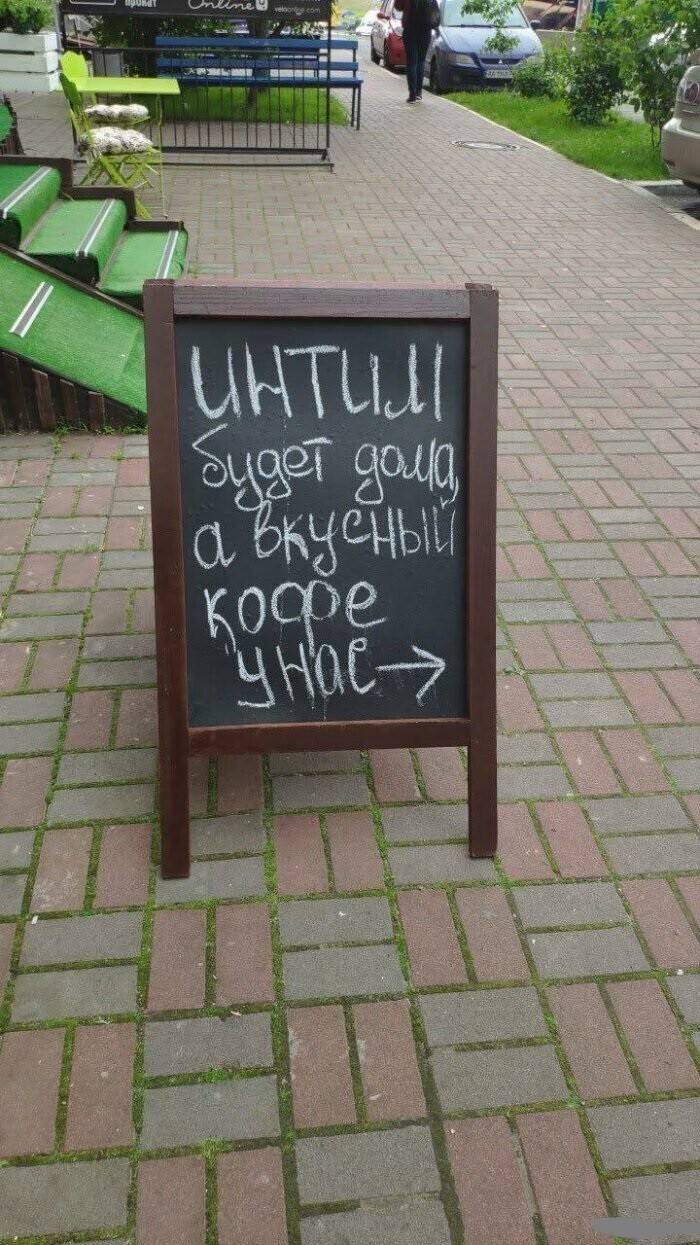 прокат
Online
veloonline.com
ИНТИМ
будет дома,
а вкусный
кофе
у нас →